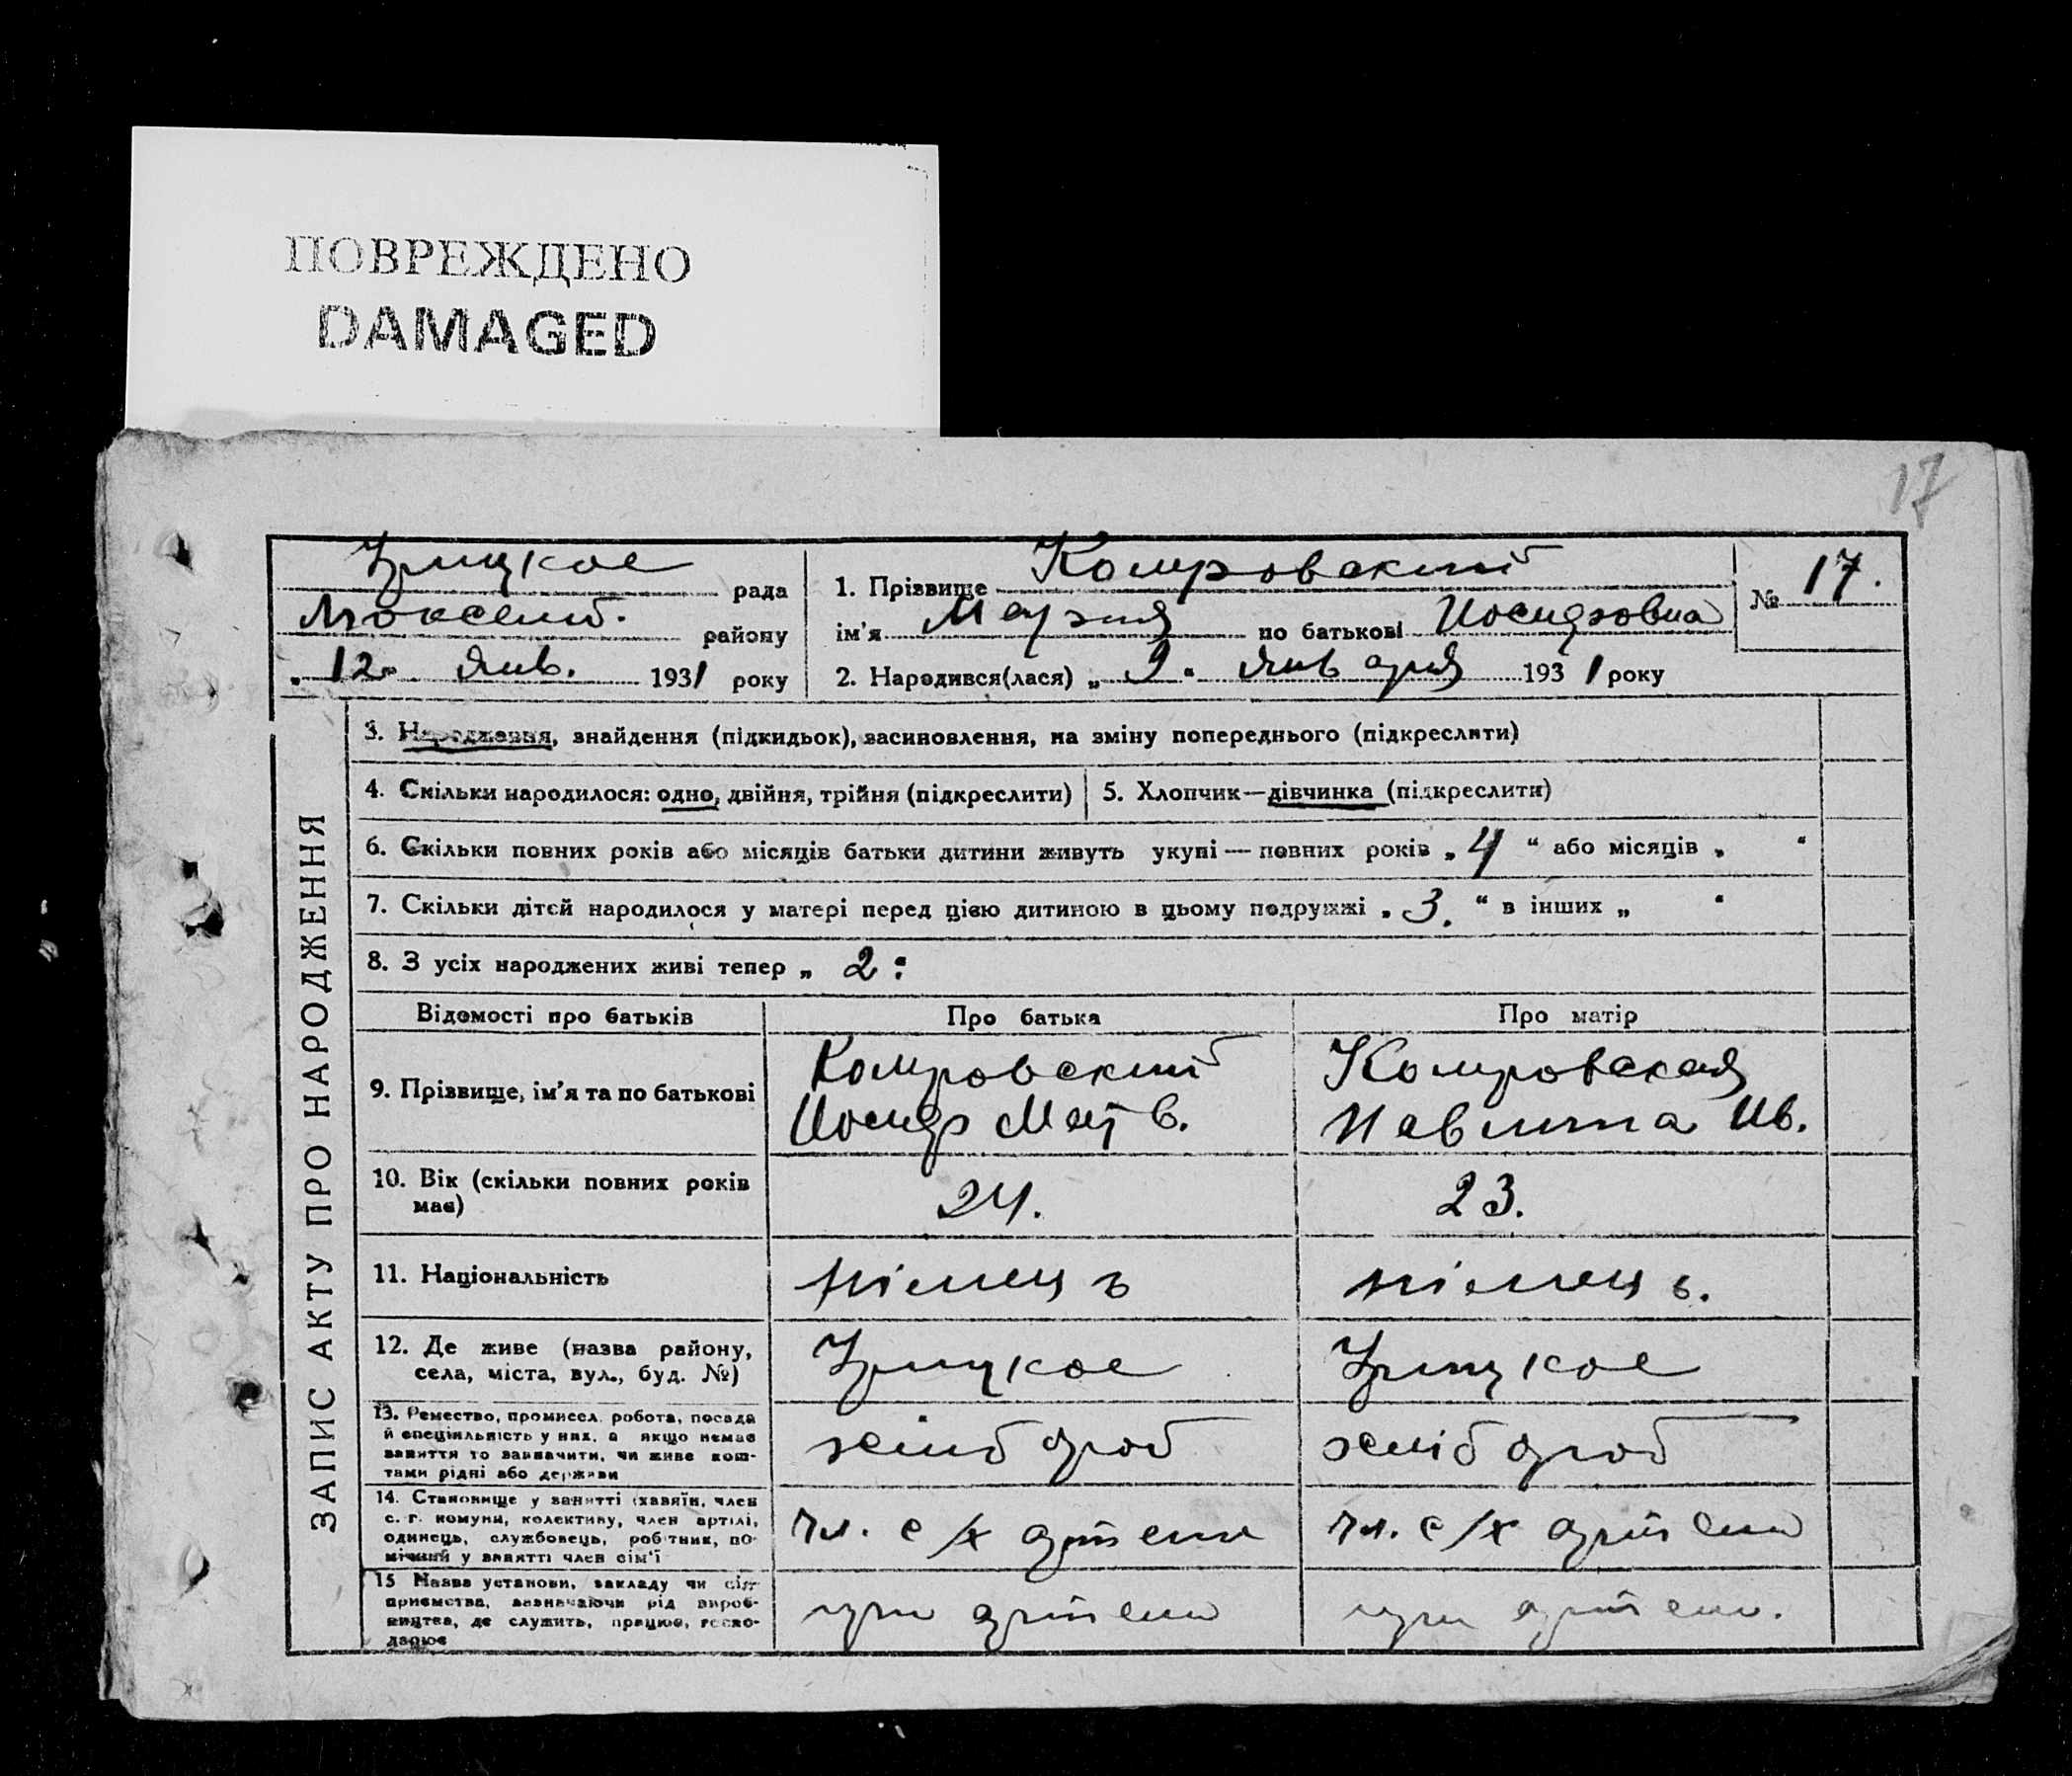 ПОВРЕЖДЕНО
DAMAGED
17
Урицкое рада
району
„ 12 " Янв. 1931 року
1. Прізвище Комровский
ім’я Мария по батькові Иосифовна
№ 17.
2. Народився(лася) „ 9 " января 1931 року
ЗАПИС АКТУ ПРО НАРОДЖЕННЯ
3. Народження, знайдення (підкидьок), засиновлення, на зміну попереднього (підкреслити)
4. Скільки народилося: одно, двійня, трійня (підкреслити)
5. Хлопчик—дівчинка (підкреслити)
6. Скільки повних років або місяців батьки дитини живуть укупі — повних років „ 4 “ або місяців „ “
7. Скільки дітей народилося у матері перед цією дитиною в цьому подружжі „ 3. “ в інших „ “
8. З усіх народжених живі тепер „ 2 :
Відомості про батьків
Про батька
Про матір
9. Прізвище, ім’я та по батькові
Комровский
Иосиф Матв.
Комровская
Павлина Ив.
10. Вік (скільки повних років
має)
24.
23.
11. Національність
німець
німець.
12. Де живе (назва району,
села, міста, вул., буд. №)
Урицкое
Урицкое
13. Ремество, промисел, робота, посада
й спеціяльність у них, а якщо немає
заняття то зазначити, чи живе кош-
тами рідні або держави
хліб ороб
хліб ороб
14. Становище у занятті (хазяїн, член
с.-г. комуни, колективу, член артілі,
одинець, службовець, робітник, по-
мічний у занятті член сім’ї
чл. с/х артели
чл. с/х артели
15 Назва установи, закладу чи під-
приємства, зазначаючи рід вироб-
ництва, де служить, працює, госпо-
дарює
при артели
при артели.